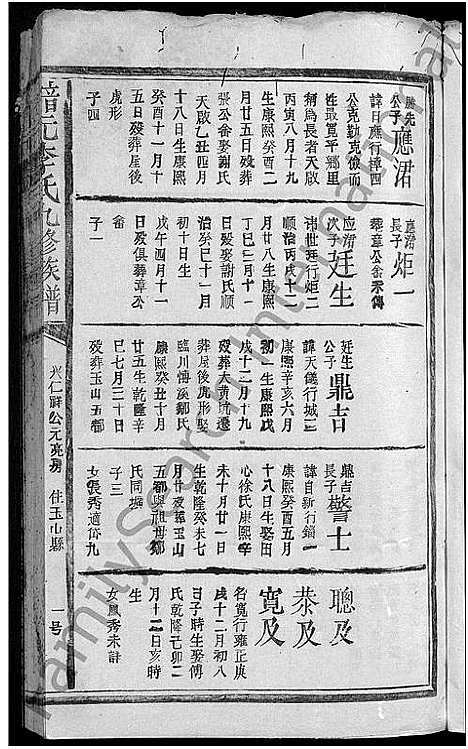 應涒
諱日應行樟四
公克勤克儉而
姓最寬平鄉里
稱爲長者天啟
丙寅八月十九
生康熙癸酉二
月廿五日殁葬
張公畲娶謝氏
天啟乙丑四月
十八日生康熙
癸酉十一月十
五日殁葬屋後
虎形
子四
應涒
長子
炬一
葬章公畲未傳
应涒
次子
廷生
諱世廷行炬二
順治丙戌十二
月廿八生康熙
丁巳三月十一
日殁娶謝氏順
治癸巳十一月
初十日生
戊午四月十一
日殁俱葬章公
畲
子一
廷生
公子
鼎吉
諱天儀行城三
康熙辛亥六月
初一生康熙戊
戌十二月十九
殁葬于黄坑遷
葬屋後虎形娶
臨川溥溪鄒氏
康熙癸丑十月
廿五生乾隆辛
巳七月三十日
殁葬玉山五都
鼎吉
長子
警士
諱自新行鎬一
康熙癸酉五月
十八日生娶田
心徐氏康熙辛
未十月廿一日
生乾隆癸未七
月廿殁葬玉山
五都與祖母鄒
氏同壙
子三
女長秀適信九
聰及
恭及
寬及
名寬行雍正庚
戌十二月初八
日子時生娶傅
氏乾隆己卯二
月十二日亥時
生
女鳳秀未許
李氏九修族譜
興仁嗣公元亮房
住玉山縣
一号
FamilySearch International